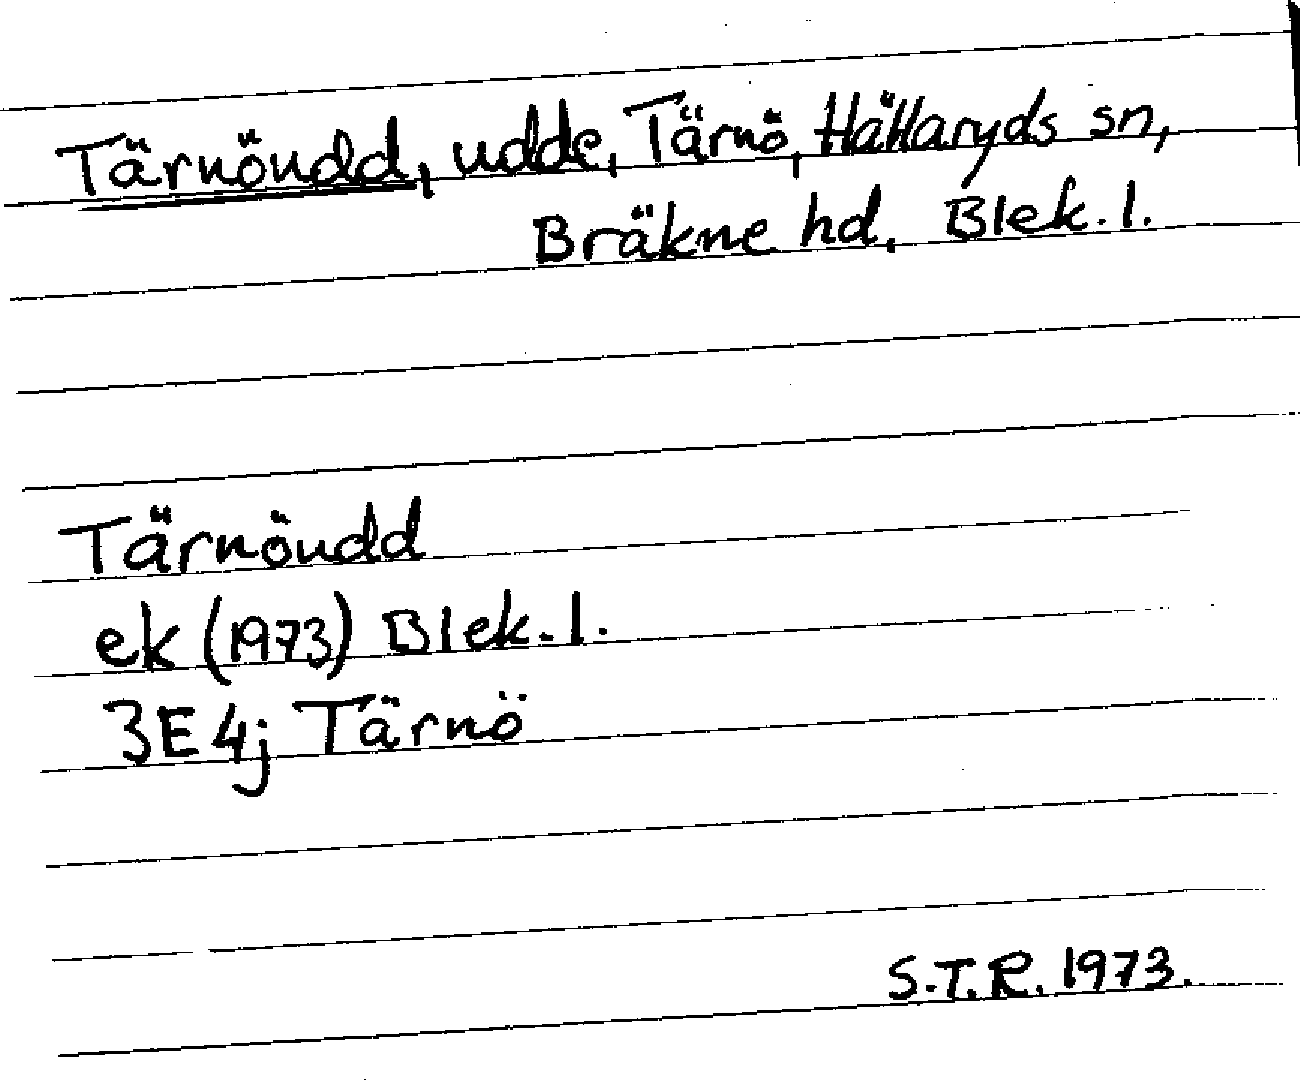 Tärnöudd, udde, Tärnö, Hällaryds sn,
Bräkne hd, Blek. l.
Tärnöudd
ek (1973) Blek. l.
3E4j Tärnö
S.T.R. 1973.